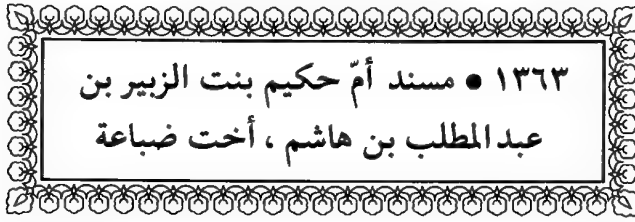 ١٣٦٣ ● مسند أمّ حكيم بنت الزبير بن
عبد المطلب بن هاشم ، أخت ضباعة